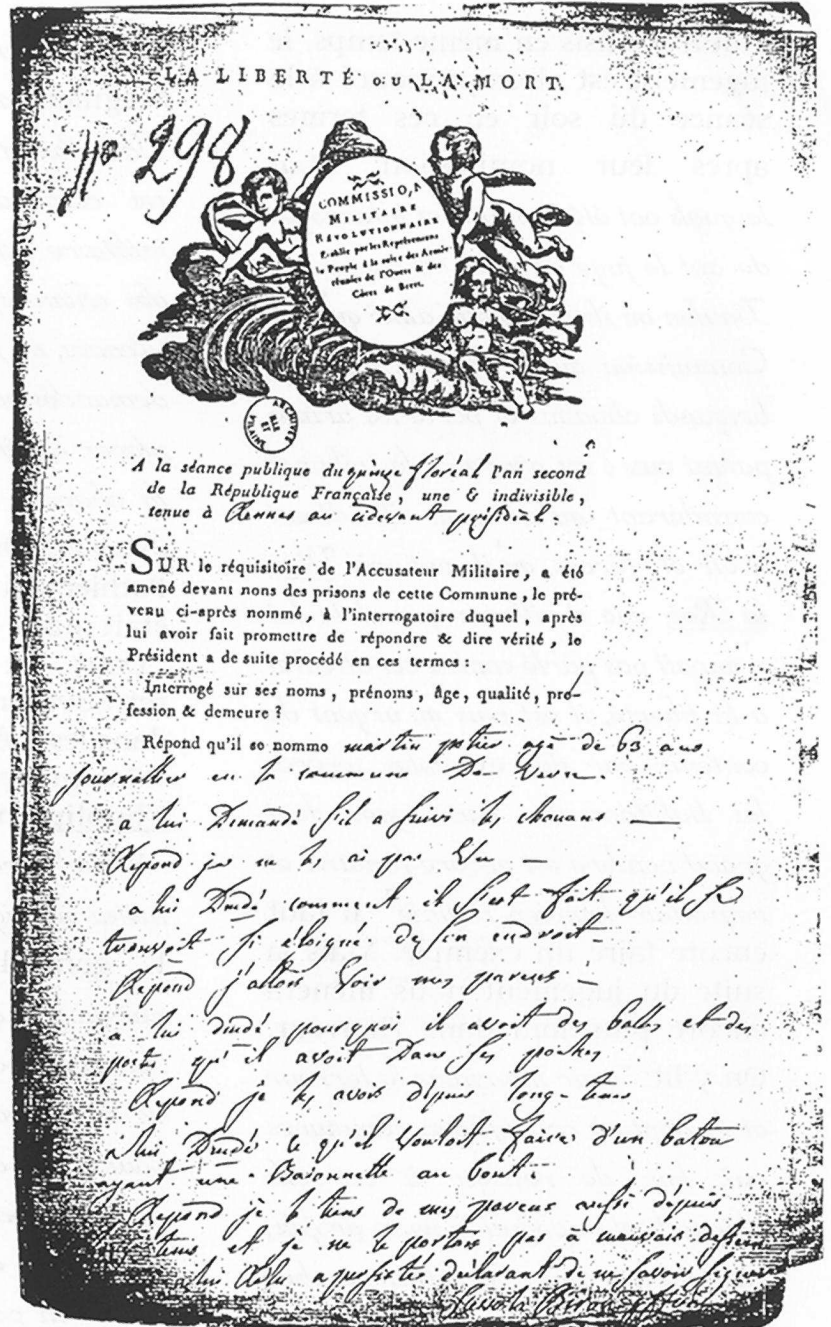 LA LIBERTÉ OU LA MORT.
N° 298
COMMISSION
MILITAIRE
RÉVOLUTIONNAIRE
Etablie par les Représentans
du Peuple à la suite des Armées
réunies de l'Ouest & des
Côtes de Brest.
A la séance publique du quinze floréal l'an second
de la République Française, une & indivisible,
tenue à Rennes au cidevant présidial.
SUR le réquisitoire de l'Accusateur Militaire, a été
amené devant nons des prisons de cette Commune, le pré-
venu ci-après nommé, à l'interrogatoire duquel, après
lui avoir fait promettre de répondre & dire vérité, le
Président a de suite procédé en ces termes :
Interrogé sur ses noms, prénoms, âge, qualité, pro-
fession & demeure ?
Répond qu'il se nomme martin potier agé de 63 ans
journallier en la commune De
a lui Demandé s'il suivi les chouans
Répond je ne les ai pas Vu
a lui Dmdé comment il s'est fait qu'il se
trouvoit si éloigné de son endroit
Répond j'allois Voir mes parens
a lui dmdé pourquoi il avoit des balles et des
postes qu'il avoit Dans ses poches
Répond je les avois depuis long-tems
a lui Dmdé ce qu'il Vouloit faire d'un baton
ayant une Baionnette au bout
Répond je le tiens de mes parens aussi dépuis
tems et je ne le portois pas à mauvais dessein
lui Relu a persisté déclarant de ne savoir signer